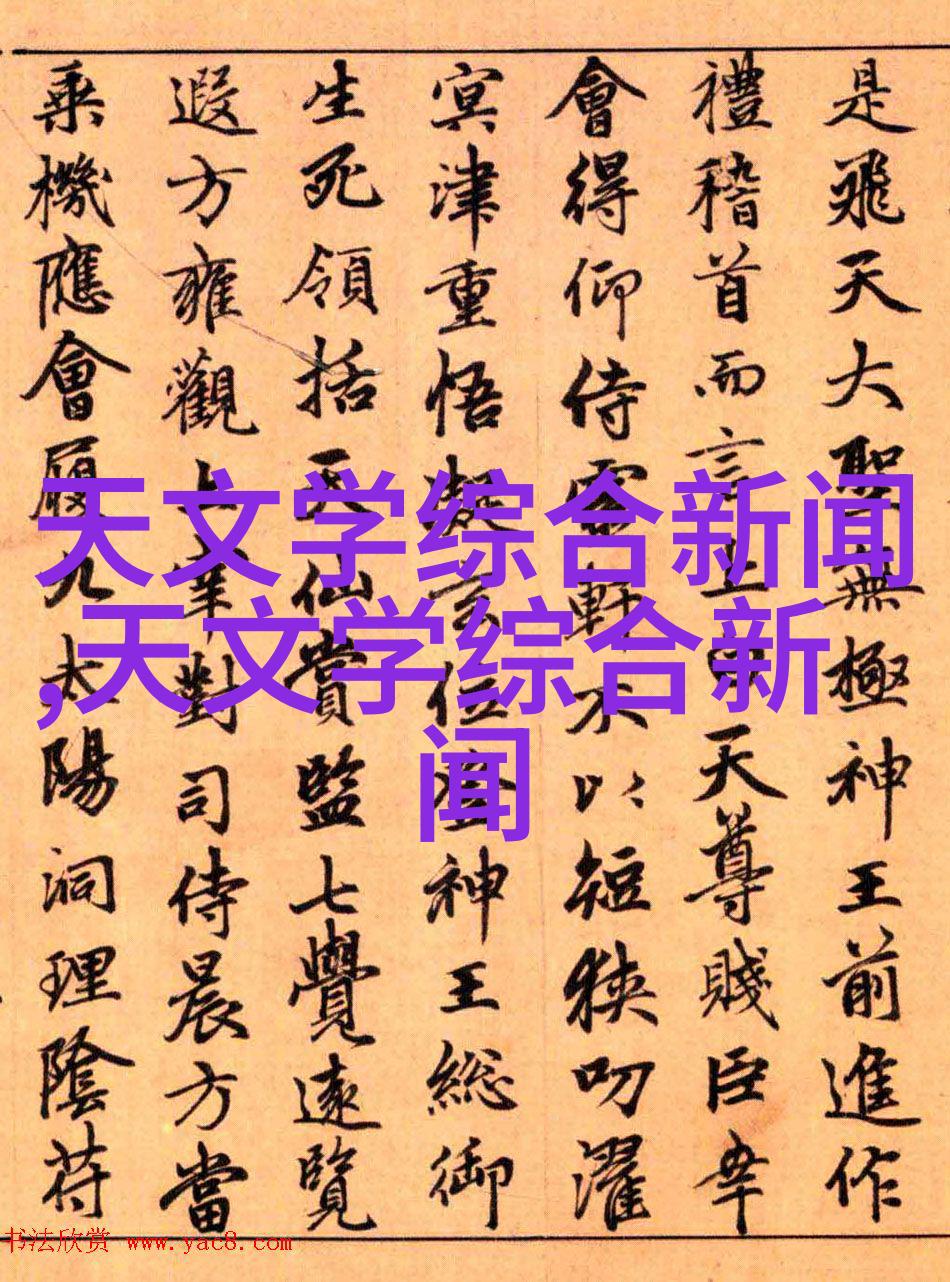 是飛天大聖無極神王前進作
禮稽首而言上天尊賤臣幸
會得仰侍靈軒不以短狹叨濯
冥津重悟凝玄位登神王総御
生死領括天仙賞監七覺遠覽
遐方雍觀上業對司侍晨方當
乗機應會履九太陽洞理陰苻
天文学综合新闻
,天文学综合新
闻
书法欣赏 www.yac8.com